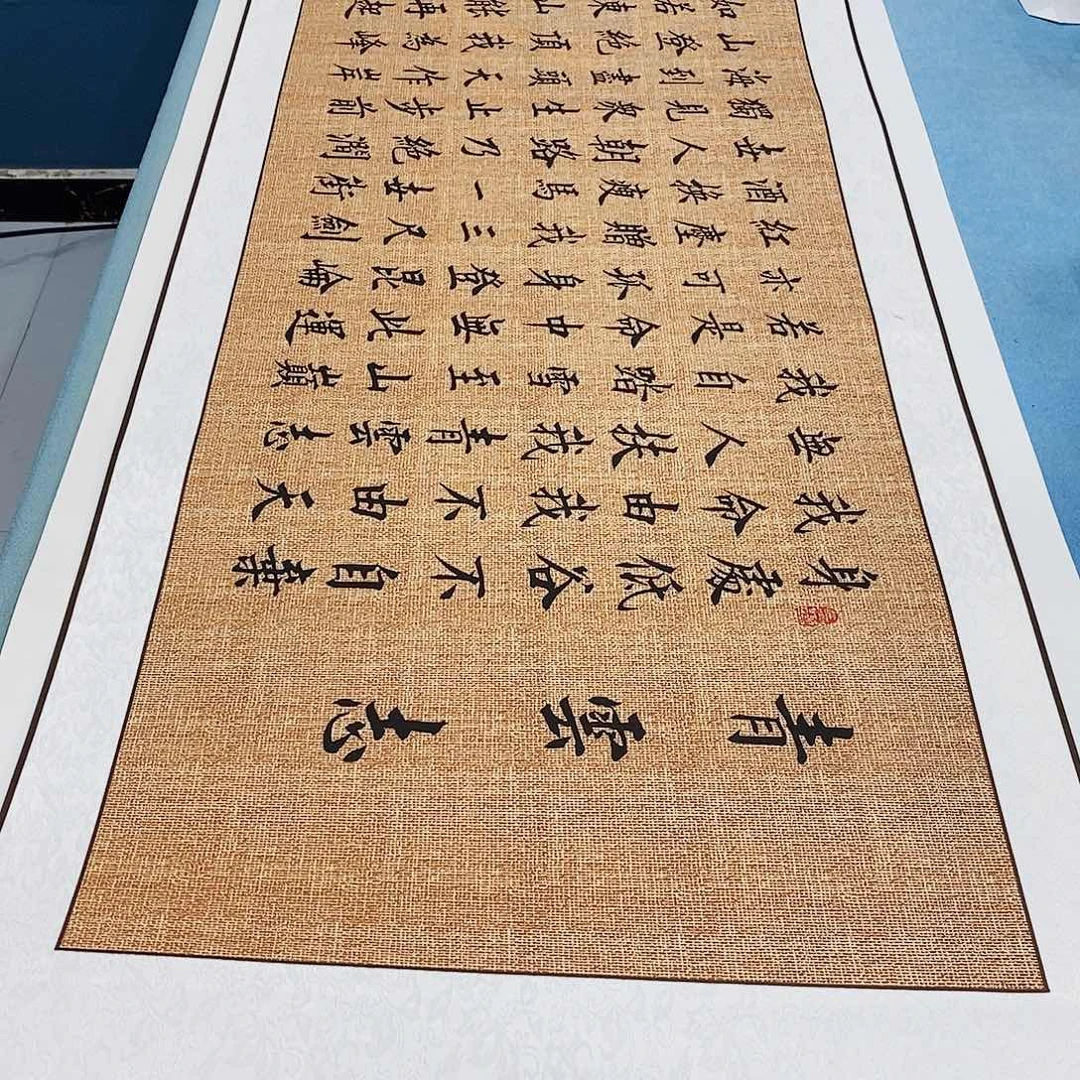 青雲志
身處低谷不自棄
我命由我不由天
無人扶我青雲志
我自踏雪至山巔
若是命中無此運
亦可孤身登昆崘
紅塵贈我三尺劍
酒俠瘦馬一世街
世人朝路乃絕澗
獨見眾生止步前
海到盡頭天作岸
山登絕頂我為峰
如若東山能再起